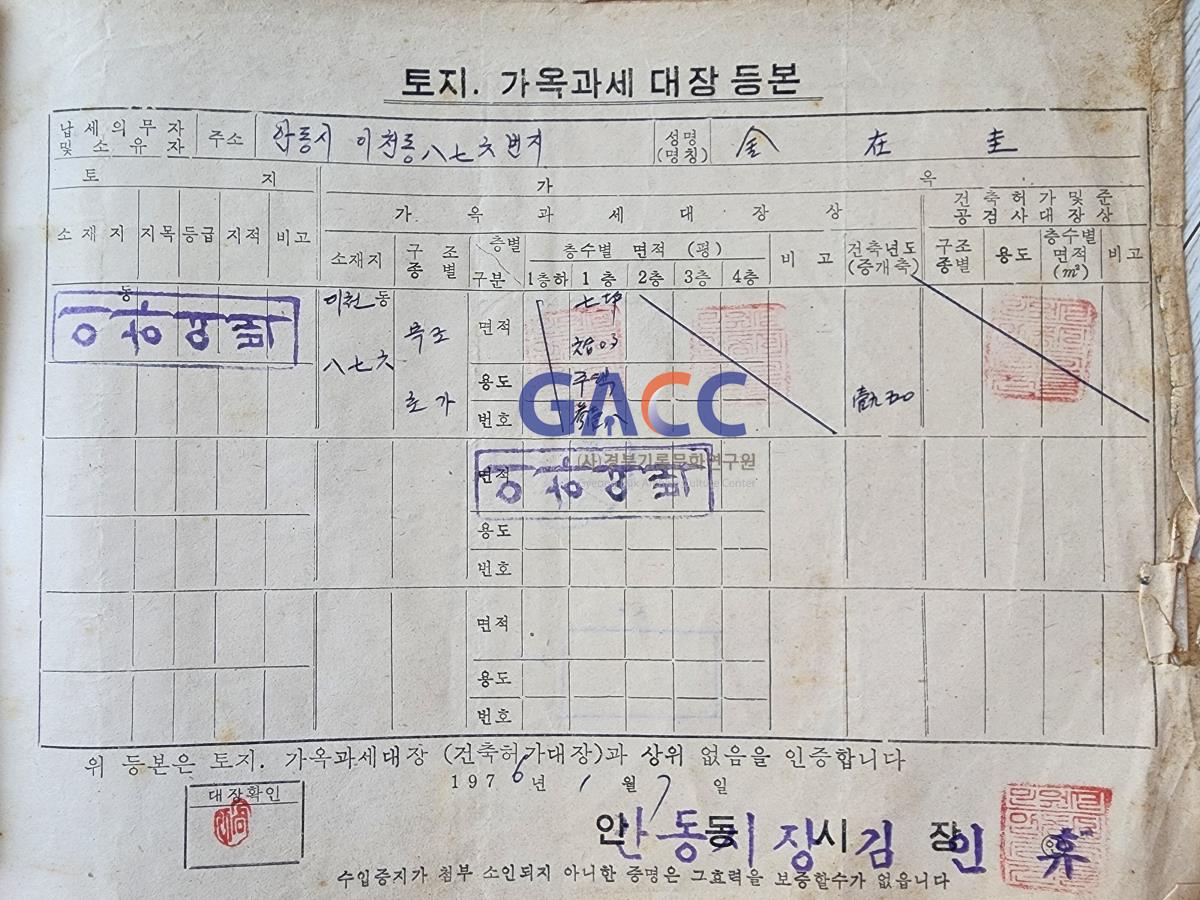 토지. 가옥과세 대장 등본
납세의무자 및 소유자 주소 안동시 이천동 八七六번지 성명 (명칭) 金 在 圭
토 지 가 옥
가 옥 과 세 대 장 상 건축허가및준공검사대장상
소재지 지목 등급 지적 비고 소재지 구조종별 층별 구분 층수별 면적 (평) 비 고 건축년도 (증개축) 구조종별 용도 층수별 면적 (㎡) 비고
1층하 1층 2층 3층 4층
동 이천동 면적 七坪
이하여백 八七六 목조
용도 주택
초가 번호
GACC
(사)경북기록문화연구원
Gyeongbuk Archive Culture Center
면적 이하여백
용도
번호
면적
용도
번호
위 등본은 토지. 가옥과세대장 (건축허가대장)과 상위 없음을 인증합니다
1976년 1월 7일
대장확인
안동시장
안동시장 김 인 휴
수입증지가 첨부 소인되지 아니한 증명은 그효력을 보증할수가 없읍니다